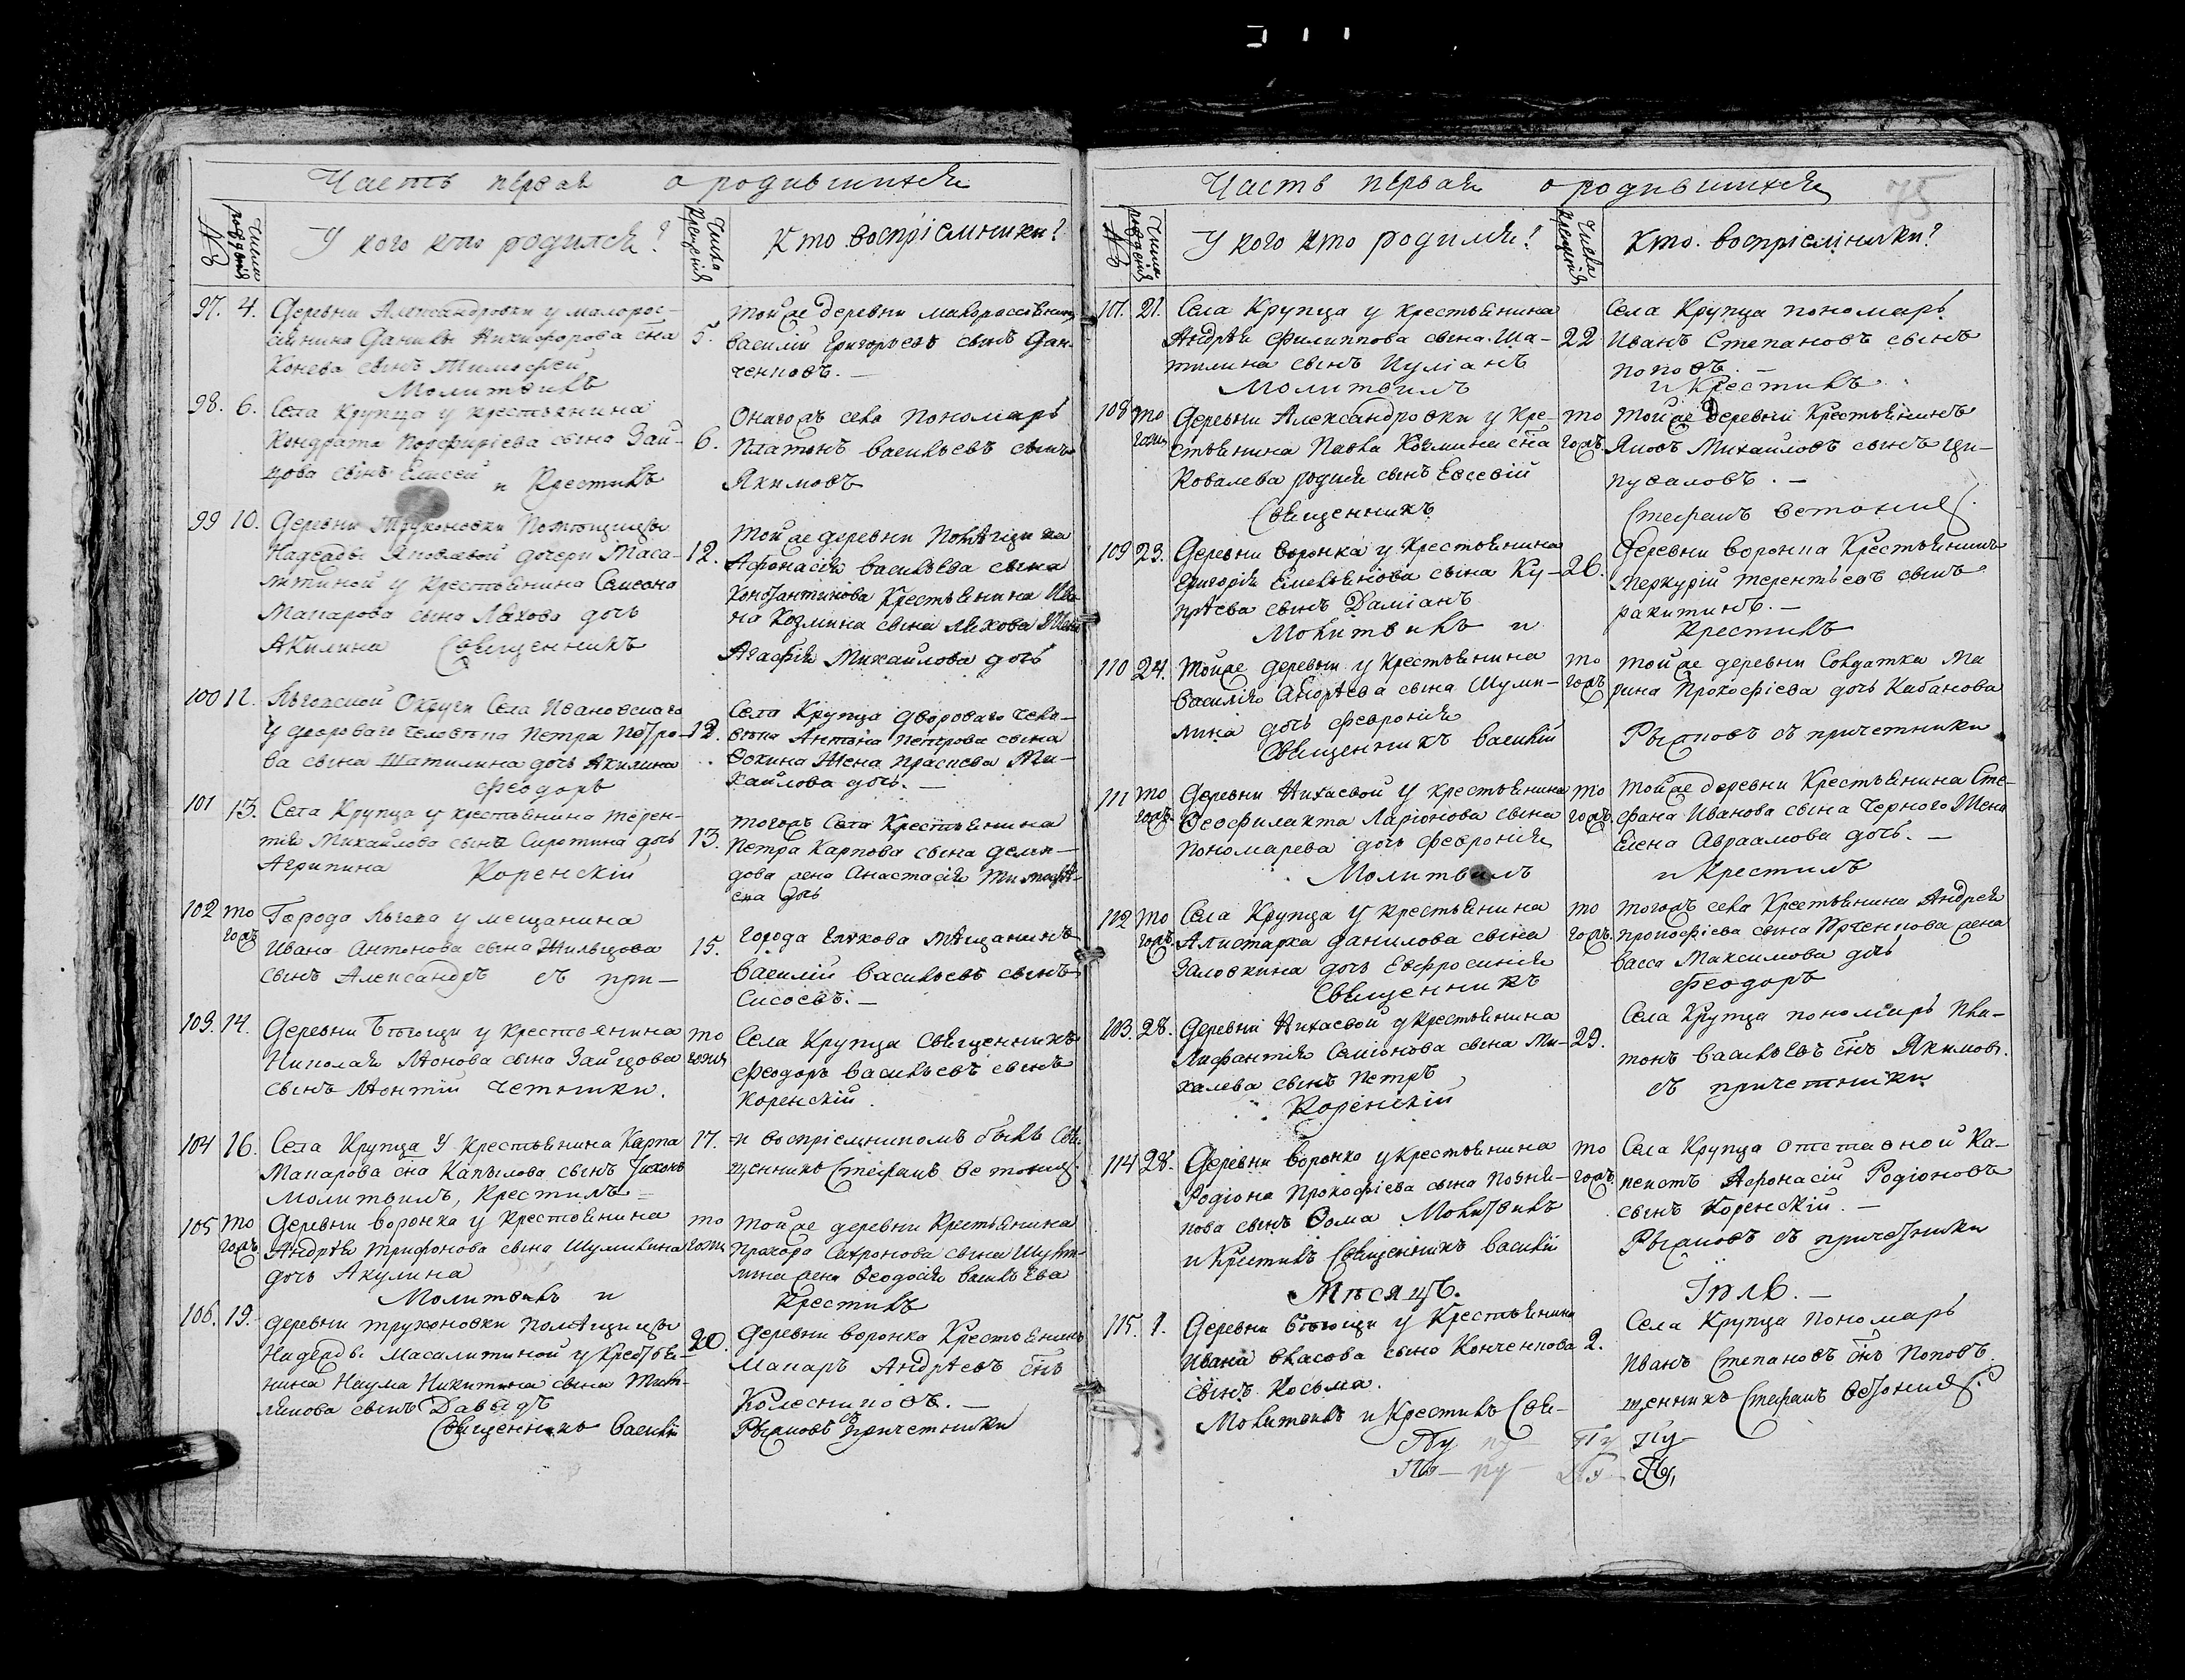 Часть первая о родившихся
№
Числа рождения
У кого кто родился?
Числа крещения
Кто воспріемники?
97. 4. Деревни Александровки у малорос-
сіянина Данилы Никифорова сна
Конева сынъ Тимофей
5.
тойже деревни малороссіянинъ
Василій Григорьевъ сынъ Дан-
ченковъ. —
Молитвилъ
98. 6. Села Крупца у крестьянина
Кондрата Порфиріева сына Зай-
цова сынъ Елисей
6.
Онагожъ села Пономарь
Платонъ Васильевъ сынъ
Якимовъ
и Крестилъ
99 10. Деревни Трухоновки Помѣщицы
Надежды Яковлевой дочери Маса-
литиной у Крестьянина Симеона
Макарова сына Ляхова дочь
Акилина Священникъ
12.
Тойже деревни
Афонасія Васильева сына
Константинова Крестьянина Ива-
на Козмина сына Ляхова Жена
Агафія Михайлова дочь
100 12. Льговской Округи Села Ивановскаго
У двороваго человѣка Петра Петро-
ва сына Шатилина дочь Акилина
12.
Села Крупца Двороваго чело-
вѣка Антона Петрова сына
Ѳокина Жена Прасковья Ми-
хайлова дочь. —
Феодоръ
101 13. Села Крупца у крестьянина Терен-
тія Михайлова сына Сиротина дочь
Агрипина Коренскій
13.
тогожъ Села Крестьянина
Петра Карпова сына
дова жена Анастасія Тимофѣ-
ева дочь
102 то гожъ Города Льгова у мещанина
Ивана Антонова сына Жильцова
сынъ Александръ съ при-
15.
города мѣщанинъ
Василій Васильевъ сынъ
Сисоевъ. —
103. 14. Деревни Бѣгощи у крестьянина
Николая Леонова сына Зайцова
сынъ Леонтій четники.
то гожъ
Села Крупца Священникъ
Феодоръ Васильевъ сынъ
Коренскій.
104 16. Села Крупца У Крестьянина Карпа
Макарова сна Капылова сынъ Тихонъ
Молитвилъ, Крестилъ
17.
и воспріемникомъ былъ Свя-
щенникъ Стефанъ
105 то гожъ Деревни Воронка у Крестьянина
Андрѣя Трифонова сына Шумилина
дочь Акулина
то гожъ
тойже деревни Крестьянина
Прохора Сафронова сына Шуми-
лина жена Ѳеодосія Васильева
Молитвилъ и Крестилъ
106. 19. деревни Трухоновки Помѣщицы
Надежды Масалитиной у Крестья-
нина Наума Никитина сына
сынъ Давыдъ
20.
Деревни Воронка Крестьянинъ
Макаръ Андрѣевъ снъ
Колесниковъ. —
Священникъ Василій Рыжковъ съ причетники
Часть первая о родившихся
75
№
Числа рождения
У кого кто родился?
Числа крещения
Кто воспріемники?
107. 21. Села Крупца у крестьянина
Андрѣя Филиппова сына Ша-
тилина сынъ Иуліанъ
22
Села Крупца пономарь
Иванъ Степановъ сынъ
поповъ. —
Молитвилъ и Крестилъ
108 то гожъ Деревни Александровки у Кре-
стьянина Павла Козмина сна
Ковалева родился сынъ Евсевій
то гожъ
тойже Деревни Крестьянинъ
Яковъ Михайловъ сынъ Ци-
пуваловъ. —
Священникъ Стефанъ
109 23. Деревни Воронка у Крестьянина
Григорія Емельянова сына Ку-
прѣева сынъ Даміанъ
26.
Деревни Воронка Крестьянинъ
Меркурій Терентьевъ сынъ
ракитинъ. —
Молитвилъ и Крестилъ
110 24. Тойже деревни у Крестьянина
Василія Андрѣева сына Шуми-
лина дочь Февронія
то гожъ
тойже деревни Солдатка Ма
рина Прокофіева дочь Кабанова
Священникъ Василій Рыжковъ съ причетники
111 то гожъ. Деревни Нихаевой У крестьянина
Ѳеофилакта Ларіонова сына
Пономарева дочь Феврония
то гожъ.
Тойже деревни Крестьянина Сте-
фана Иванова сына Черного Жена
Елена Авраамова дочь. —
Молитвилъ и Крестилъ
112 То гожъ Села Крупца У крестьянина
Алистарха Данилова сына
Заловкина дочь Евфросиния
то гожъ.
тогожъ села Крестьянина Андрея
прокофіева сына Юрченкова жена
Васса Максимова дочь
Священникъ Феодоръ
103. 28. Деревни Нихаевой у Крестьянина
Лифантія Семіонова сына Ми-
халева сынъ Петръ
29.
Села Крупца пономарь Пла-
тонъ Васильевъ снъ Якимовъ.
Коренскій съ причетники
114 28. Деревни Воронка у крестьянина
Родіона Прокофіева сына Позня-
кова сынъ Ѳома Молитвилъ
и Крестилъ Священникъ Василій
то гожъ
Села Крупца отставной Ка-
пеистъ Афонасій Родіоновъ
сынъ Коренскій. —
Рыжковъ съ причетники
Мѣсяцъ. Іюль. —
115. 1. Деревни Бѣгощи у Крестьянина
Ивана Власова сына Конченкова
сынъ Косьма.
2.
Села Крупца Пономарь
Иванъ Степановъ снъ Поповъ
Молитвилъ и Крестилъ Свя-
щенникъ Стефанъ